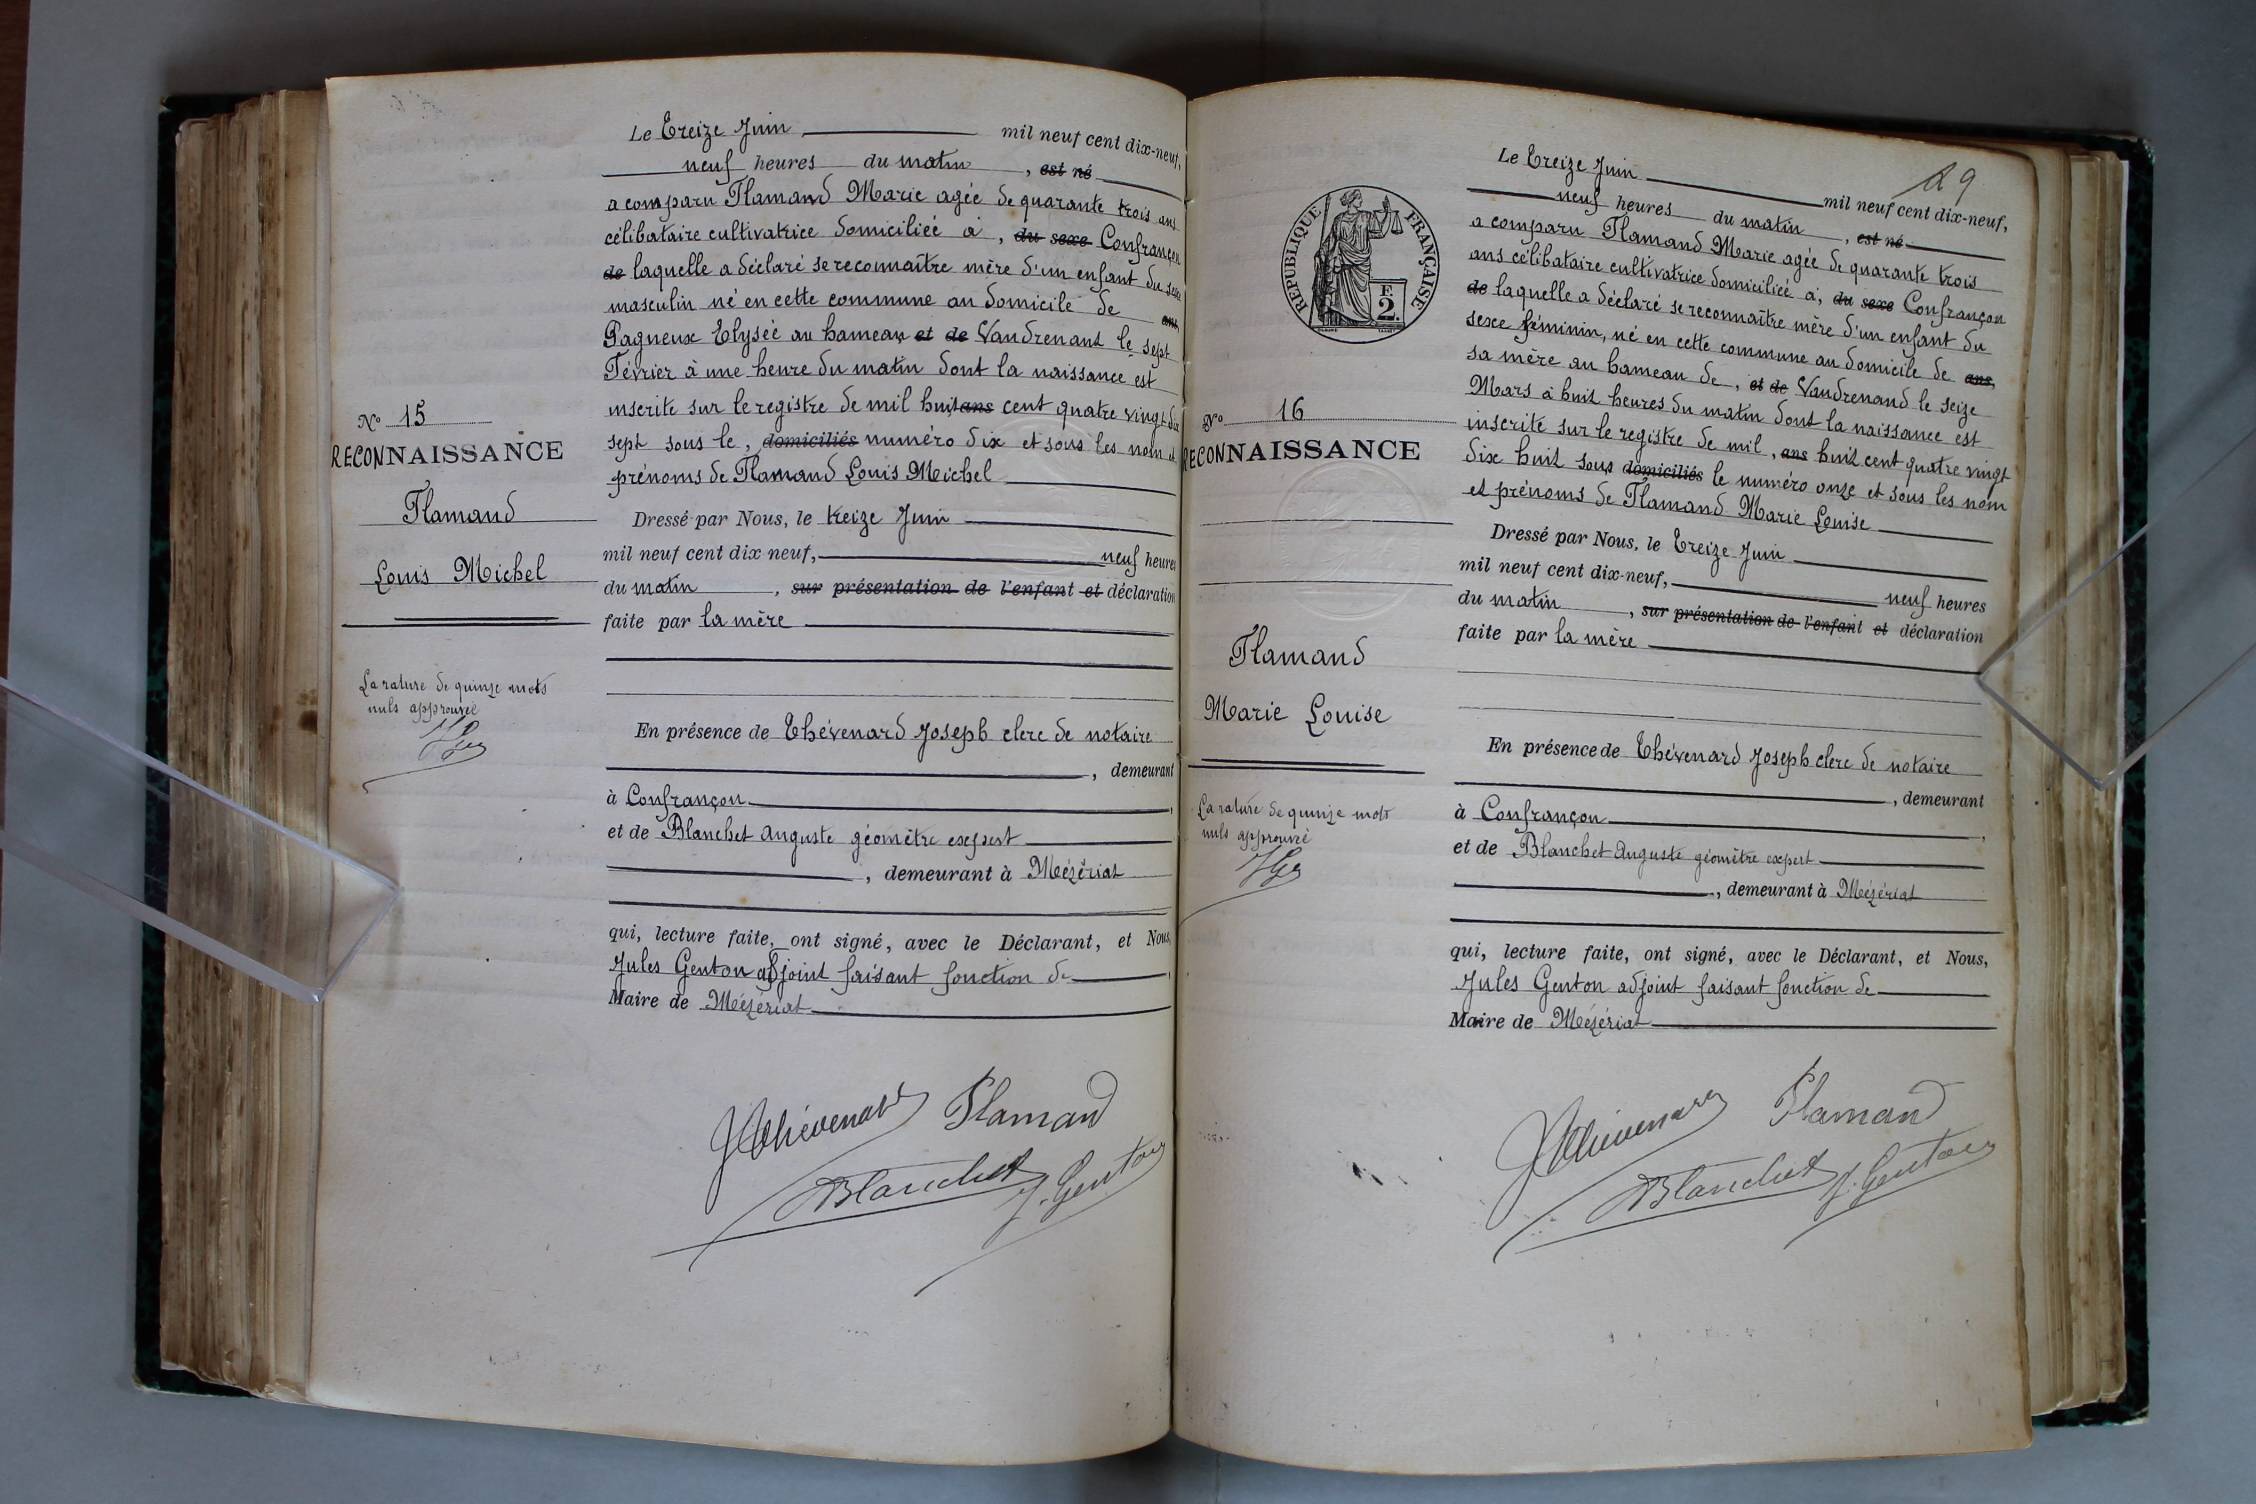 Le Treize Juin mil neuf cent dix-neuf,
neuf heures du matin, est né
a comparu Flamand Marie agée de quarante trois ans
célibataire cultivatrice domiciliéé à, du sexe Confrançon
de laquelle a déclaré se reconnaître mère d'un enfant du sexe
masculin né en cette commune au domicile de ans,
Pagneux Elysée au hameau et de Vaudrenant le sept
Février à une heure du matin dont la naissance est
inscrite sur le registre de mil huit ans cent quatre vingt dix
sept sous le, domiciliés numéro dix et sous les nom et
prénoms de Flamand Louis Michel
Nº 15
RECONNAISSANCE
Flamand
Louis Michel
Dressé par Nous, le treize Juin
mil neuf cent dix neuf, neuf heures
du matin, sur présentation de l'enfant et déclaration
faite par la mère
La rature de quinze mots
nuls approuvée
En présence de Thévenard Joseph clerc de notaire
, demeurant
à Confrançon,
et de Blanchet Auguste géomètre expert
, demeurant à Mézériat
qui, lecture faite, ont signé, avec le Déclarant, et Nous,
Jules Genton adjoint faisant fonction de,
Maire de Mézériat
JThévenard Flamand
Blanchet J. Genton
29
RÉPUBLIQUE FRANÇAISE
F.
2.
Le Treize Juin mil neuf cent dix-neuf,
neuf heures du matin, est né
a comparu Flamand Marie agée de quarante trois
ans célibataire cultivatrice domiciliéé à, du sexe Confrançon
de laquelle a déclaré se reconnaître mère d'un enfant du
sexe féminin, né en cette commune au domicile de ans,
sa mère au hameau de, et de Vaudrenand le seize
Mars à huit heures du matin dont la naissance est
inscrite sur le registre de mil, ans huit cent quatre vingt
dix huit sous domiciliés le numéro onze et sous les nom
et prénoms de Flamand Marie Louise
Nº 16
RECONNAISSANCE
Flamand
Marie Louise
Dressé par Nous, le Treize Juin
mil neuf cent dix-neuf, neuf heures
du matin, sur présentation de l'enfant et déclaration
faite par la mère
La rature de quinze mots
nuls approuvée
En présence de Thévenard Joseph clerc de notaire
, demeurant
à Confrançon,
et de Blanchet Auguste géomètre expert
, demeurant à Mézériat
qui, lecture faite, ont signé, avec le Déclarant, et Nous,
Jules Genton adjoint faisant fonction de
Maire de Mézériat
JThévenard Flamand
Blanchet J. Genton